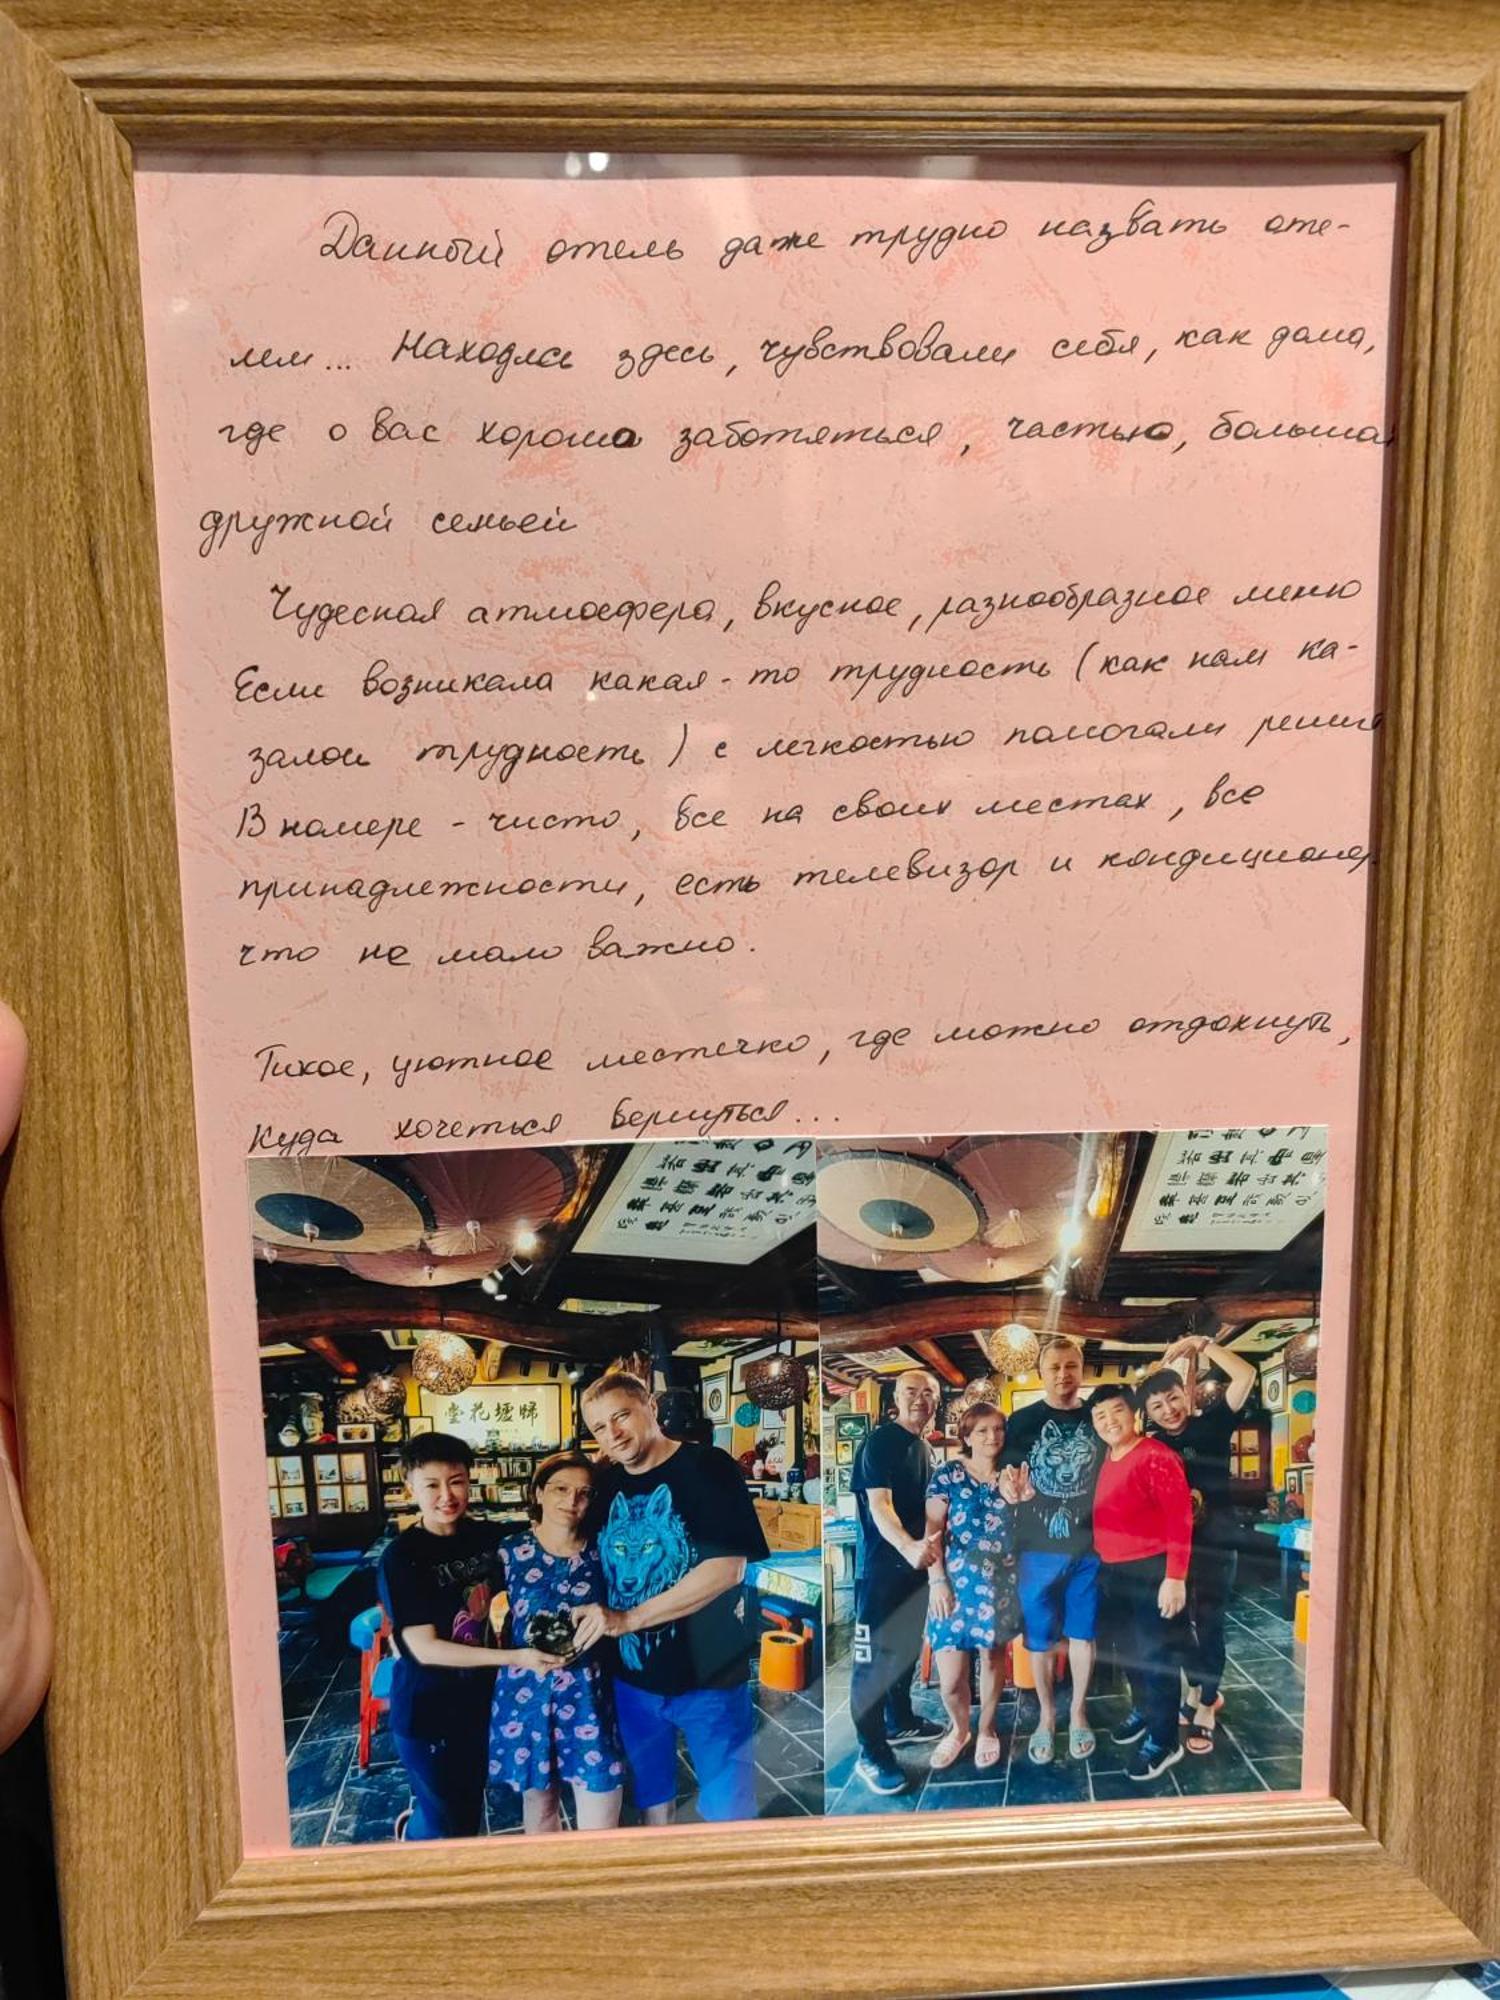 Данный отель даже трудно назвать оте-
лем... Находясь здесь, чувствовали себя, как дома,
где о вас хорошо заботяться, частью, большой
дружной семьей
Чудесная атмосфера, вкусное, разнообразное меню
Если возникала какая-то трудность (как нам ка-
залось трудность) с легкостью помогали решить
В номере - чисто, все на своих местах, все
принадлежности, есть телевизор и кондиционер
что не мало важно.
Тихое, уютное местечко, где можно отдохнуть,
Куда хочеться вернуться...
堂花墟歸